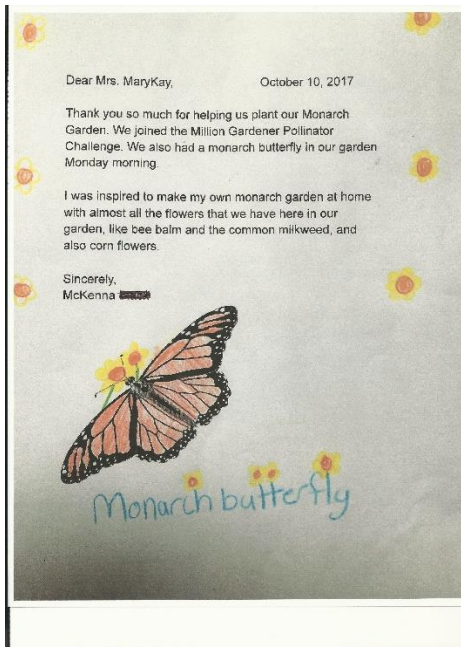 Dear Mrs. MaryKay, October 10, 2017
Thank you so much for helping us plant our Monarch
Garden. We joined the Million Gardener Pollinator
Challenge. We also had a monarch butterfly in our garden
Monday morning.
I was inspired to make my own monarch garden at home
with almost all the flowers that we have here in our
garden, like bee balm and the common milkweed, and
also corn flowers.
Sincerely,
McKenna
Monarch butterfly